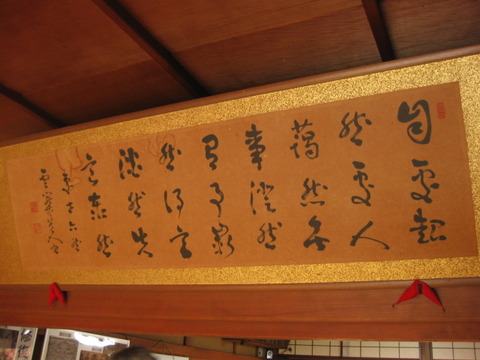 自處超
然處人
藹然無
事澄然
有事嶄
然得意
淡然失
意泰然
六然